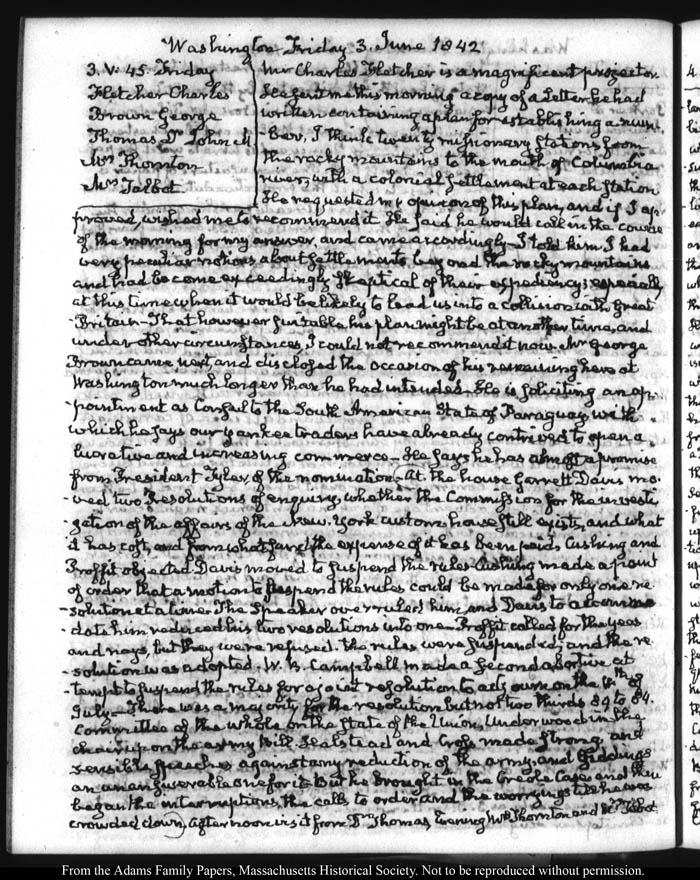 Washington Friday 3. June 1842
3. V. 45. Friday
Fletcher Charles
Brown George
Thomas Dr. John M
Mrs Thornton
Mrs Talbot
Mr Charles Fletcher is a magnificent projector.
He sent me this morning a copy of a Letter he had
written containing a plan for establishing a num-
-ber, I think twenty missionary stations from
the rocky mountains to the mouth of Columbia
river, with a colonial settlement at each station
He requested my opinion of this plan, and if I ap-
proved, wished me to recommend it. He said he would call in the course
of the morning for my answer, and came accordingly. I told him I had
very peculiar notions about settlements beyond the rocky mountains
and had become exceedingly skeptical of their expediency; especially
at this time when it would be likely to lead us into a collision with Great
-Britain—That however suitable his plan might be at another time, and
under other circumstances, I could not recommend it now. Mr George
Brown came next, and disclosed the occasion of his remaining here at
Washington much longer than he had intended. He is soliciting an ap-
-pointment as Consul to the South American State of Paraguay, with
which he says our yankee traders have already contrived to open a
lucrative and increasing commerce—He says he has almost a promise
from President Tyler, of the nomination. At the house Garrett Davis mo-
-ved two Resolutions of enquiry, whether the Commission for the investi-
-gation of the affairs of the New-York custom house still exists, and what
it has cost, and from what fund the expense of it has been paid. Cushing and
Proffit objected. Davis moved to suspend the rules. Cushing made a point
of order that a motion to suspend the rules could be made for only one re-
-solution at a time. The Speaker overruled him, and Davis to accommo-
-date him reduced his two resolutions into one. Proffit called for the yeas
and nays, but they were refused. the rules were suspended; and the re-
-solution was adopted. W. B. Campbell made a second abortive at-
-tempt to suspend the rules for a joint resolution to adjourn on the
July—There was a majority for the resolution but not two thirds 89 to 84.
Committee of the whole on the State of the Union, Underwood in the
chair, upon the army bill. Halstead and Gross made strong and
sensible speeches against any reduction of the army, and Giddings
an unanswerable one for it. But he brought in the Creole Case; and then
began the interruptions, the calls to order, and the worryings till he was
crowded down. Afternoon visit from Dr. Thomas, Evening Mrs Thornton and Mrs Talbot
From the Adams Family Papers, Massachusetts Historical Society. Not to be reproduced without permission.